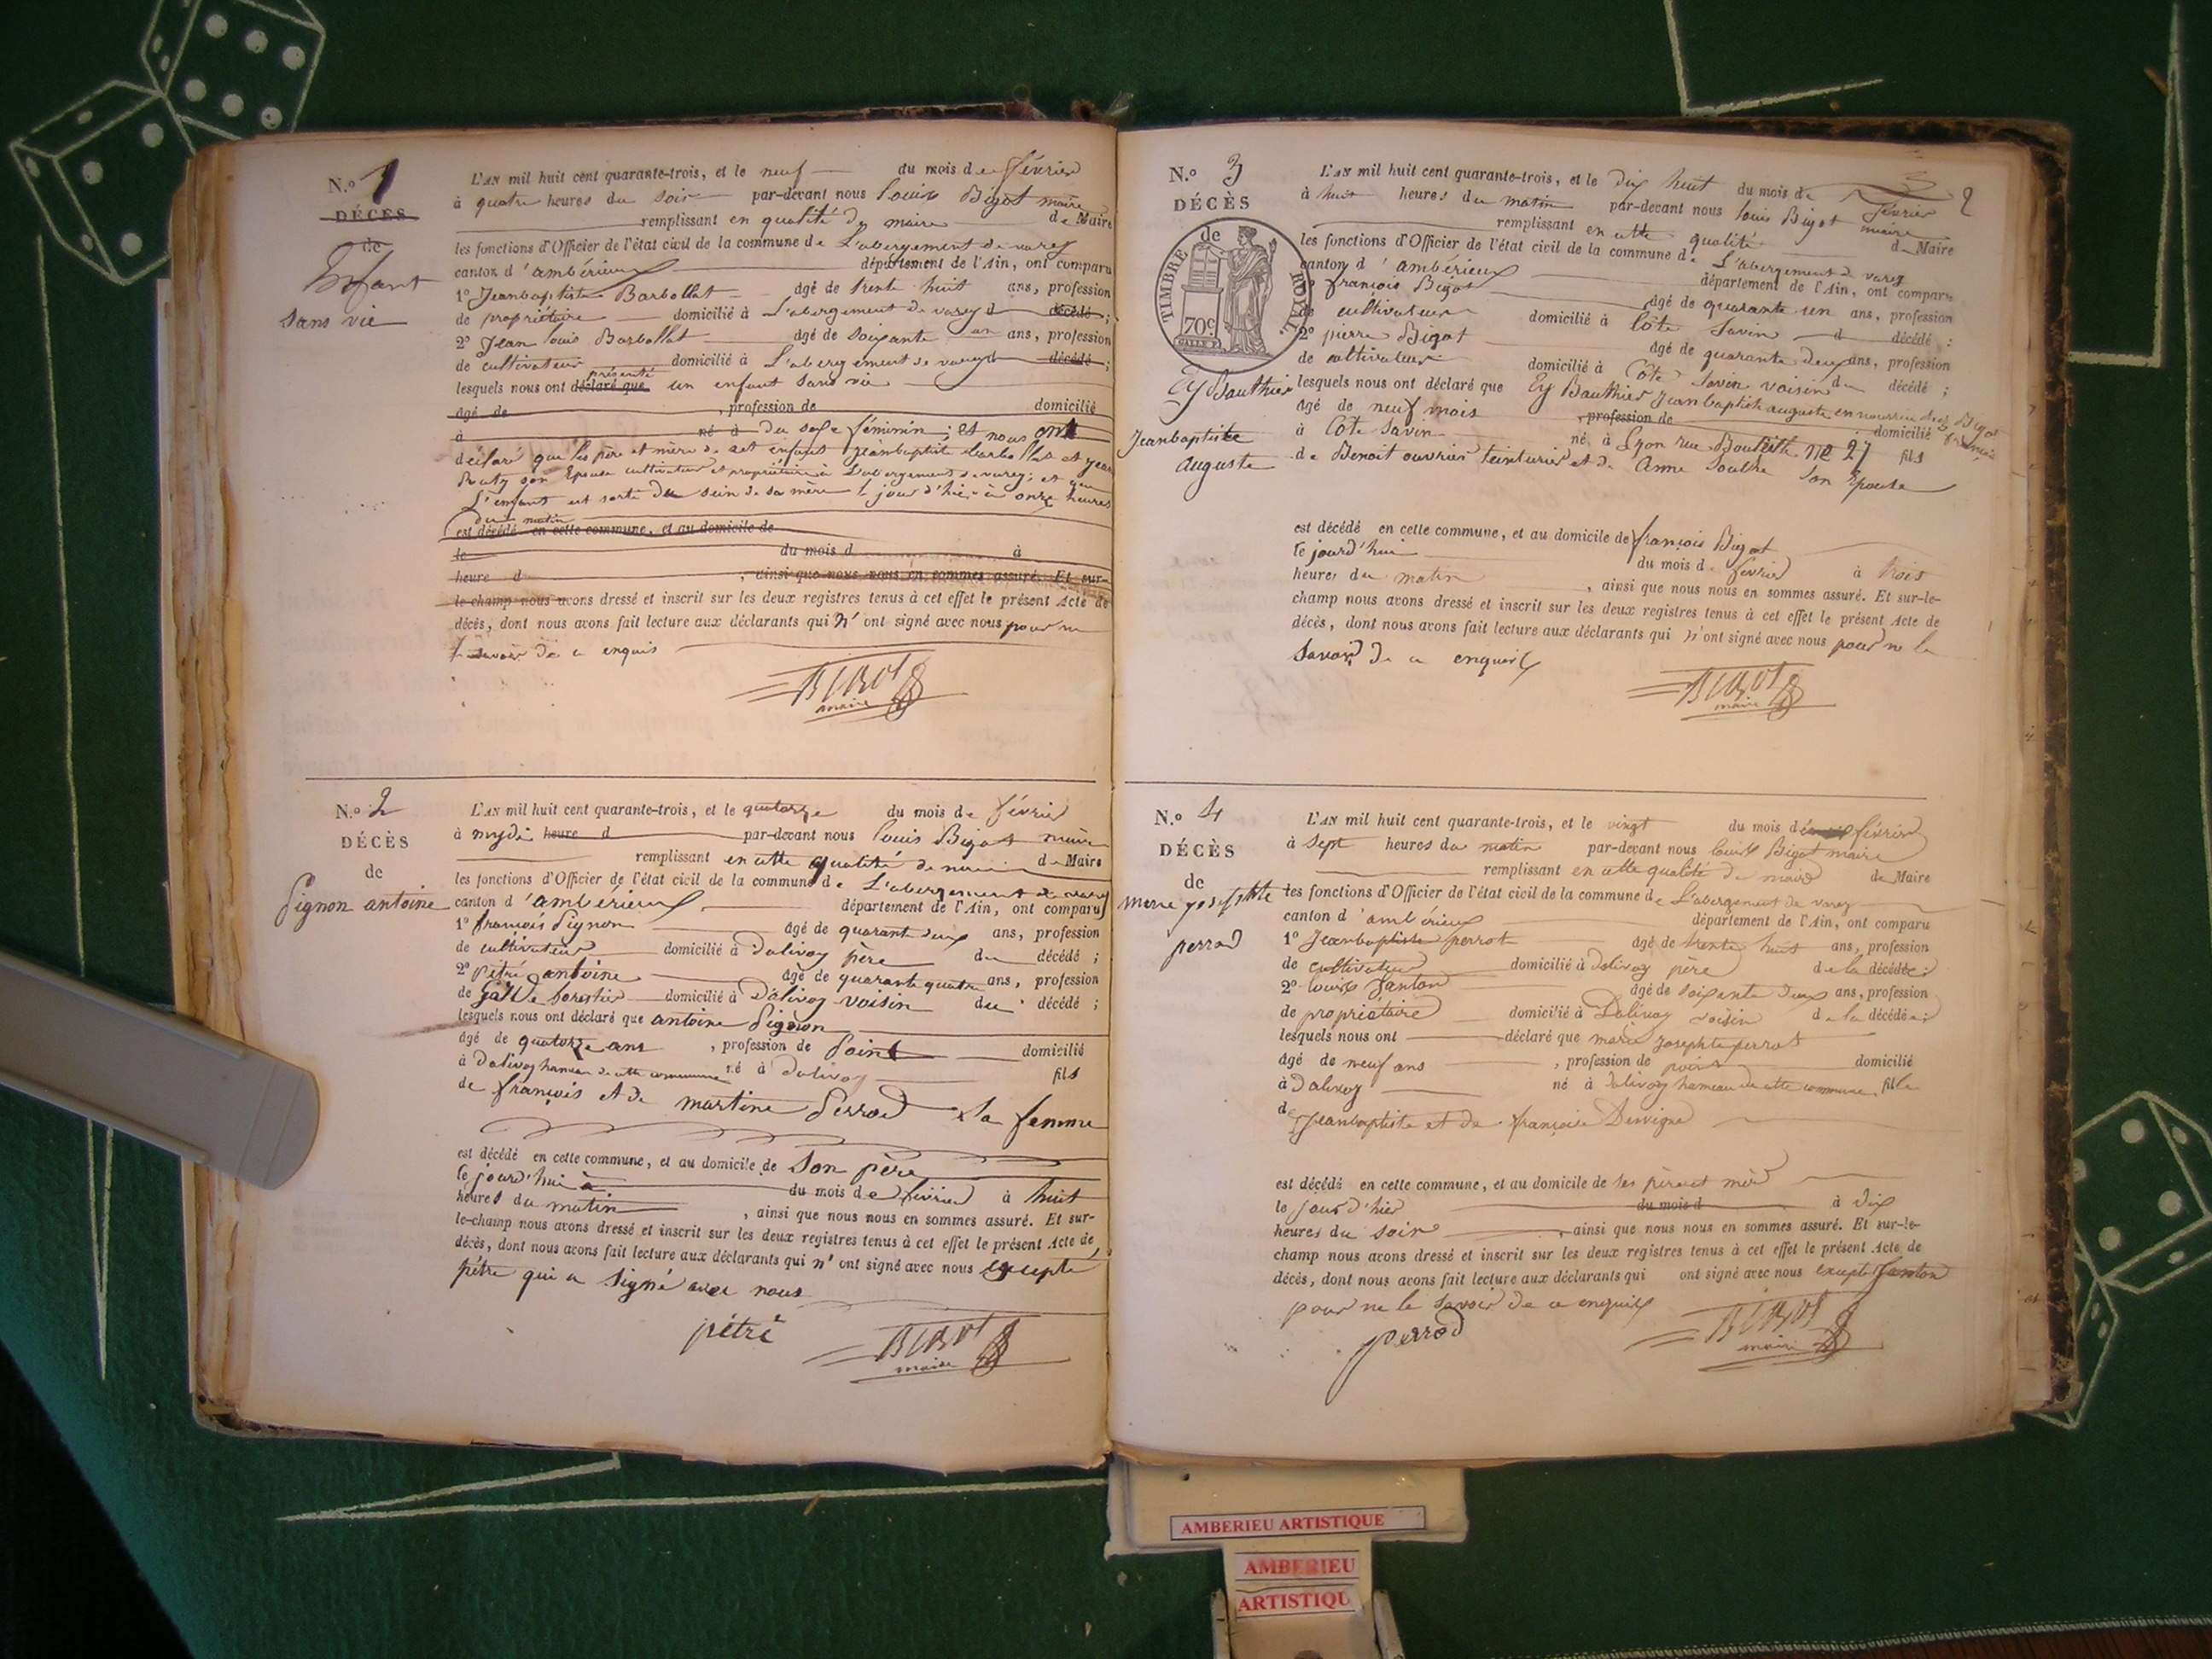 N.o 1
DÉCÈS
de
Enfant
sans vie
L'AN mil huit cent quarante-trois, et le neuf du mois de février
à quatre heures du soir par-devant nous Louis Bigot maire
remplissant en qualité de maire de Maire
les fonctions d'Officier de l'état civil de la commune de L'abergement de varey
canton d'ambérieux département de l'Ain, ont comparu
1o Jeanbaptiste Barbollat âgé de trente huit ans, profession
de propriétaire domicilié à L'abergement de varey d décédé;
2o Jean louis Barbollat âgé de soixante un ans, profession
de cultivateur domicilié à L'abergement de varey d décédé;
présenté
lesquels nous ont déclaré que un enfant sans vie
âgé de , profession de domicilié
à né à du sexe féminin; et nous ont
déclaré que les père et mère de cet enfant Jeanbaptiste Barbollat et
son Epouse cultivateur et propriétaire à L'abergement de varey; et que
L'enfant est sorti du sein de sa mère le jour d'hier à onze heures
du matin
est décédé en cette commune, et au domicile de
le du mois d à
heure d , ainsi que nous nous en sommes assuré. Et sur-
le-champ nous avons dressé et inscrit sur les deux registres tenus à cet effet le présent Acte de
décès, dont nous avons fait lecture aux déclarants qui n'ont signé avec nous pour ne
le savoir de ce enquis
BIGOT
maire
N.o 2
DÉCÈS
de
Pignon antoine
L'AN mil huit cent quarante-trois, et le quatorze du mois de février
à mydi heure d par-devant nous louis Bigot maire
remplissant en cette qualité de maire de Maire
les fonctions d'Officier de l'état civil de la commune de L'abergement de varey
canton d'ambérieux département de l'Ain, ont comparu
1o françois Pignon âgé de quarante deux ans, profession
de cultivateur domicilié à Dalivoy père du décédé;
2o pétré antoine âgé de quarante quatre ans, profession
de Garde forestier domicilié à Dalivoy voisin du décédé;
lesquels nous ont déclaré que antoine Pignon
âgé de quatorze ans , profession de Point domicilié
à Dalivoy hameau de cette commune né à Dalivoy fils
de françois et de martine Perrod sa femme
est décédé en cette commune, et au domicile de son père
le jourd'hui du mois de février à huit
heures du matin , ainsi que nous nous en sommes assuré. Et sur-
le-champ nous avons dressé et inscrit sur les deux registres tenus à cet effet le présent Acte de
décès, dont nous avons fait lecture aux déclarants qui n'ont signé avec nous excepté
pétré qui a signé avec nous
pétré
BIGOT
maire
N.o 3
DÉCÈS
de
TIMBRE ROYAL
70c
Ey Bauthier
Jeanbaptiste
Auguste
2
L'AN mil huit cent quarante-trois, et le Dix huit du mois de février
à huit heures du matin par-devant nous louis Bigot maire
remplissant en cette qualité de Maire
les fonctions d'Officier de l'état civil de la commune de L'abergement de varey
canton d'ambérieux département de l'Ain, ont comparu
1o françois Bigot âgé de quarante un ans, profession
de cultivateur domicilié à Côte Savin d décédé;
2o pierre Bigot âgé de quarante deux ans, profession
de cultivateur domicilié à Côte Savin voisin du décédé;
lesquels nous ont déclaré que Ey Bauthier Jeanbaptiste auguste en nourrice chez Bigot françois
âgé de neuf mois , profession de domicilié
à Côte Savin né à Lyon rue No 27 fils
de Benoit ouvrier teinturier et de Anne son Epouse
est décédé en cette commune, et au domicile de françois Bigot
le jourd'hui du mois de février à trois
heures du matin , ainsi que nous nous en sommes assuré. Et sur-le-
champ nous avons dressé et inscrit sur les deux registres tenus à cet effet le présent Acte de
décès, dont nous avons fait lecture aux déclarants qui n'ont signé avec nous pour ne le
savoir de ce enquis
BIGOT
maire
N.o 4
DÉCÈS
de
marie josephte
perrod
L'AN mil huit cent quarante-trois, et le vingt du mois de février
à sept heures du matin par-devant nous louis Bigot maire
remplissant en cette qualité de maire de Maire
les fonctions d'Officier de l'état civil de la commune de L'abergement de varey
canton d'ambérieux département de l'Ain, ont comparu
1o Jeanbaptiste perrot âgé de trente huit ans, profession
de cultivateur domicilié à Dalivoy père de la décédée;
2o louis Janton âgé de soixante deux ans, profession
de propriétaire domicilié à Dalivoy voisin de la décédée;
lesquels nous ont déclaré que marie josephte perrot
âgé de neuf ans , profession de point domicilié
à Dalivoy né à Dalivoy hameau de cette commune fille
de Jeanbaptiste et de françoise
est décédé en cette commune, et au domicile de ses père et mère
le jour d'hier du mois d à dix
heures du soir , ainsi que nous nous en sommes assuré. Et sur-le-
champ nous avons dressé et inscrit sur les deux registres tenus à cet effet le présent Acte de
décès, dont nous avons fait lecture aux déclarants qui ont signé avec nous excepté Janton
pour ne le savoir de ce enquis
perrod
BIGOT
maire
AMBERIEU ARTISTIQUE
AMBERIEU
ARTISTIQU